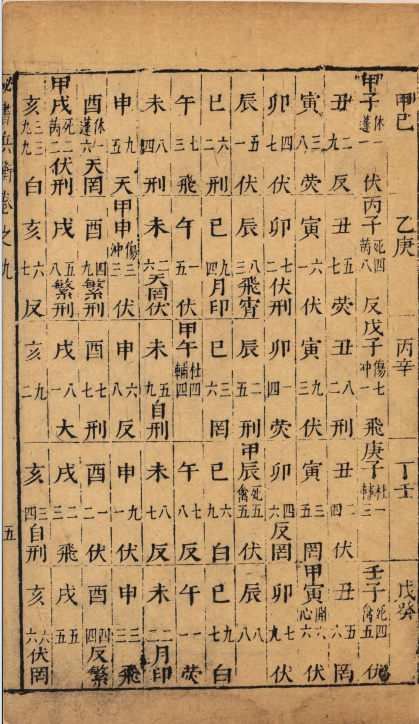 甲己 乙庚 丙辛 丁壬 戊癸
甲子 休一蓬一 伏 丙子 死四芮八 反 戊子 傷七冲一 飛 庚子 杜一輔三 壬子 死四禽五 伏
丑 二九 反 丑 五七 荧 丑 八二 刑 丑 二四 伏 丑 五六 罡
寅 三八 荧 寅 六一 伏 寅 九三 伏 寅 三五 罡 甲寅 開六心六 伏
卯 四七 伏 卯 七二 伏刑 卯 一四 荧 卯 四六 反罡 卯 七九 伏
辰 五一 伏 辰 八三 飛宵 辰 二五 刑 甲辰 死五禽五 伏 辰 八八 伏
巳 六二 刑 巳 九四 月印 巳 三六 罡 巳 六九 白 巳 九七 白
午 七三 飛 午 一五 伏 甲午 杜四輔四 午 七八 反 午 一一 荧
未 八四 刑 未 二六 天罡伏 未 五九 自刑 未 八七 反 未 二二 月印
申 九五 天 甲申 傷三冲三 伏 申 六八 反 申 九一 伏 申 三三 飛
酉 休一蓬六 天罡 酉 四九 繁刑 酉 七七 刑 酉 一二 伏 酉 四四 反繁
甲戌 死二芮二 伏刑 戌 五八 繁刑 戌 八一 大 戌 二三 飛 戌 五五
亥 三三九九 白 亥 六七 反 亥 九二 亥 三四 自刑 亥 六六 伏罡
秘書兵衡卷之九 五